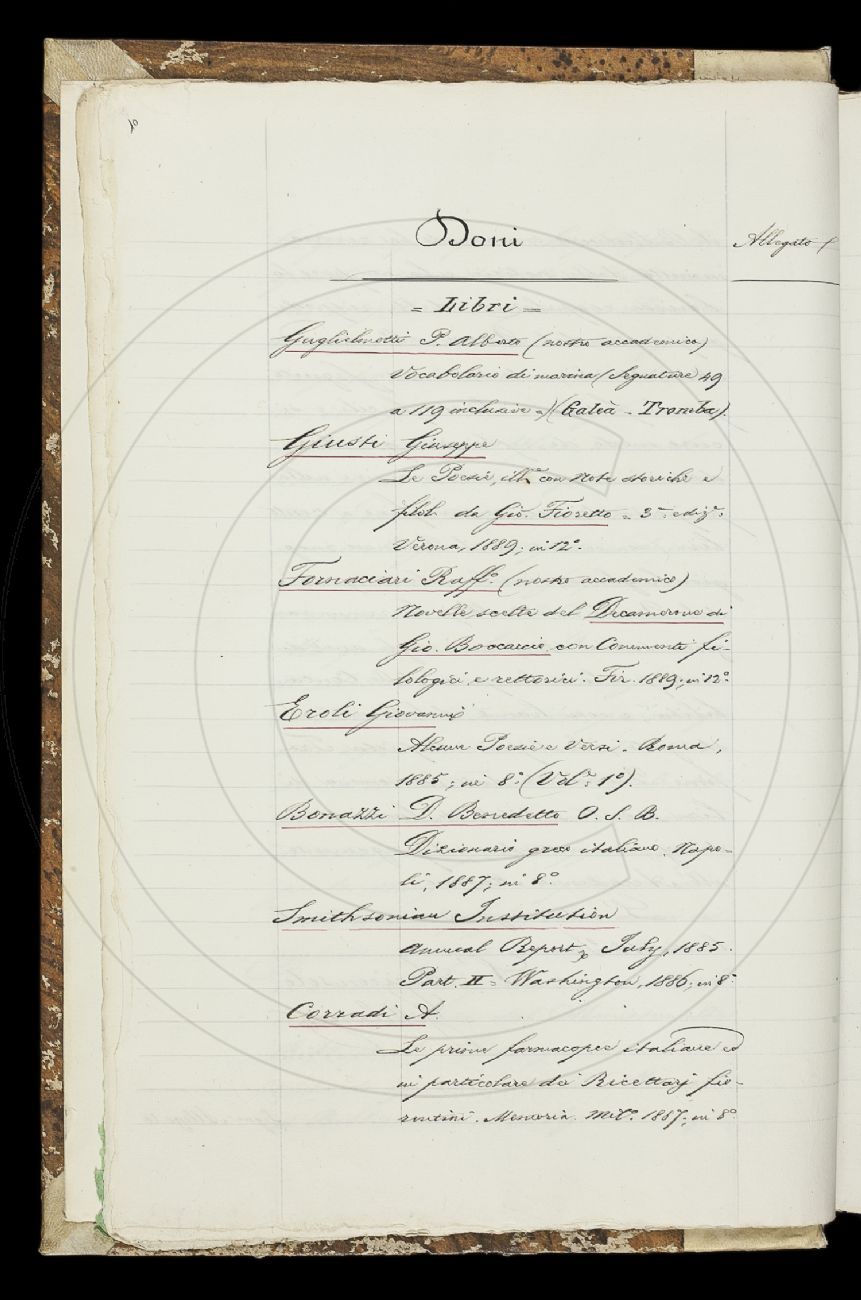 Doni
Allegato
= Libri =
Guglielmotti P. Alberto (nostro accademico)
Vocabolario di marina (Segnature 49
a 119 inclusive =) (Galèa - Tromba).
Giusti Giuseppe
Le Poesie, ill.e con Note storiche e
filol. da Gio. Fioretto = 3.a ediz.e
Verona, 1889; in 12°.
Fornaciari Raff.o (nostro accademico)
Novelle scelte del Decamerone di
Gio. Boccaccio con Commenti fi-
lologici e rettorici. Fir. 1889; in 12°.
Eroli Giovanni
Alcune Poesie e Versi. Roma,
1885; in 8° (Vol.e 1°).
Bonazzi D. Benedetto O. S. B.
Dizionario greco italiano. Napo-
li, 1887; in 8°.
Smithsonian Institution
Annual Report, July, 1885.
Part. II = Washington, 1886; in 8°
Corradi A.
Le prime farmacopee italiane ed
in particolare dei Ricettarj fio-
rentini. Memoria. Mil.o 1887; in 8°